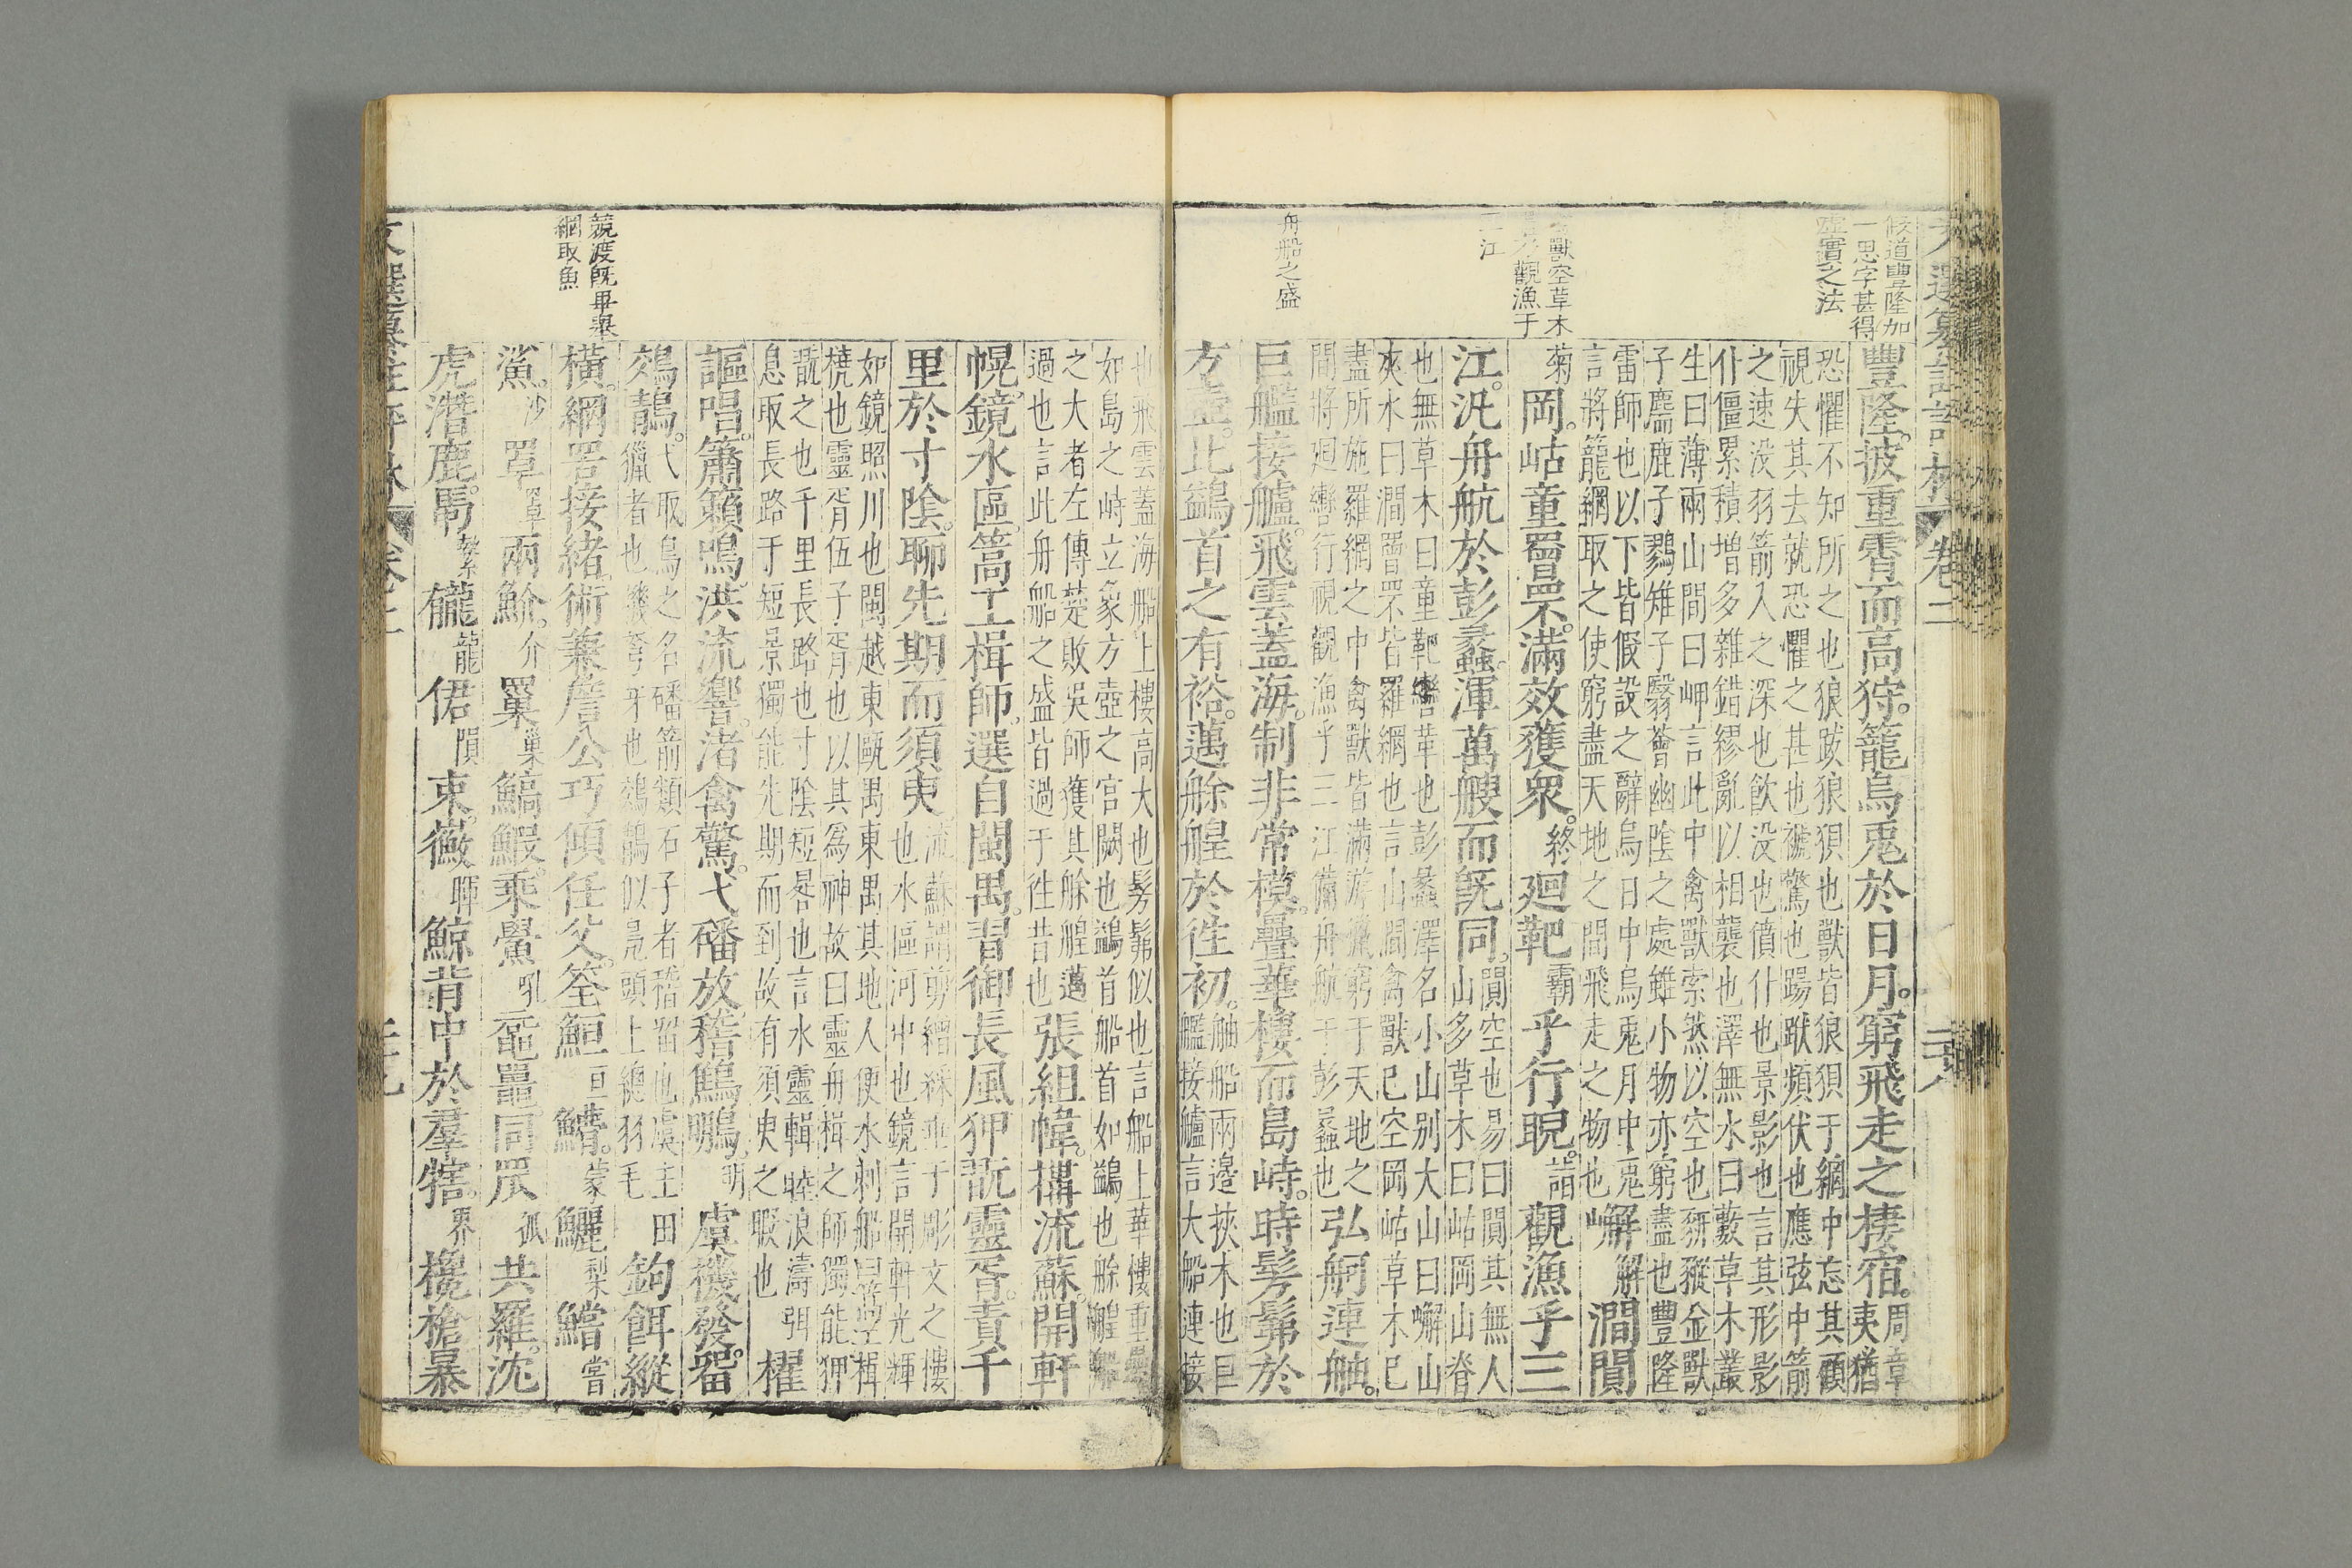 假道豐隆加
一思字甚得
虛實之法
卷二
豐隆。披重霄而高狩。籠烏兎於日月。窮飛走之棲宿。周章夷猶
恐懼不知所之也狼跋狼狽也獸皆狼狽于網中忘其顧
視失其去就恐懼之甚也褫驚也踼䟮頻伏也應弦中箭
之速没羽箭入之深也飲没也僨仆也景影也言其形影
仆僵累積增多雜錯繆亂以相襲也澤無水曰藪草木叢
生曰薄兩山間曰岬言此中禽獸索然以空也豜豵金獸
子麛鹿子鷚雉子翳薈幽陰之處雖小物亦窮盡也豐隆
雷師也以下皆假設之辭烏日中烏兎月中兎
言將籠網取之使窮盡天地之間飛走之物也嶰解澗閴
禽獸空草木
觀漁于
三江
菊岡。岵童罾罘。滿效獲衆。終廻靶霸乎行睨。詣觀漁乎三
閴空也易曰閴其無人
山多草木曰岵岡山脊
江。汎舟航於彭蠡。渾萬艘而旣同。
也無草木曰童靶轡革也彭蠡澤名小山别大山曰嶰山
夾水曰澗罾罘皆羅網也言山間禽獸已空岡岵草木已
盡所施羅網之中禽獸皆滿游獵窮于天地之
間將廻轡行視觀漁乎三江備舟航于彭蠡也弘舸連舳。
舟船之盛
巨艦接艫。飛雲蓋海。制非常模。疊華樓而島峙。時髣髴於
方壺。比鷁首之有裕。邁艅艎於徃初。舳船兩邊挾木也巨
艦接艫言大船連接
也飛雲蓋海船上樓高大也髣髴似也言船上華樓重疊
如島之峙立象方壺之宮闕也鷁首船首如鷁也艅艎船
之大者左傳楚敗吳師獲其艅艎邁
過也言此舟船之盛皆過于徃昔也張組幃。構流蘇。開軒
幌。鏡水區。篙工楫師。選自閩禺。習御長風狎翫靈胥。責千
里於寸陰。聊先期而須臾。流蘇謂剪繒綵垂于彫文之樓
也水區河中也鏡言開軒光輝
如鏡照川也閩越東甌禺東禺其地人便水刺船
橈也靈胥伍子胥也以其爲神故曰靈舟楫之師獨能狎
翫之也千里長路也寸陰短晷也言水靈輯睦浪濤弭
息取長路于短景獨能先期而到故有須臾之暇也櫂
謳唱。簫籟鳴。洪流響。渚禽驚。弋磻放。稽鷦鵬。明虞機發。畱
鵁鶄。弋取鳥之名磻箭類石子者稽畱也虞主田
獵者也機弩牙也鵁鶄似鳧頭上總羽毛鉤餌縱
競渡旣畢舉
網取魚
橫。網罟接緒。術兼詹公。巧傾任父。筌䱎亘䲛。蒙鱺梨鱨嘗
鯊。沙罩罩兩魪。介罺巢鰝鰕。乘鱟吼黿鼉。同罛孤共羅。沈
虎潛鹿。馽縶㡣龍僒隕束。徽暉鯨背中於羣犗。界攙搶暴